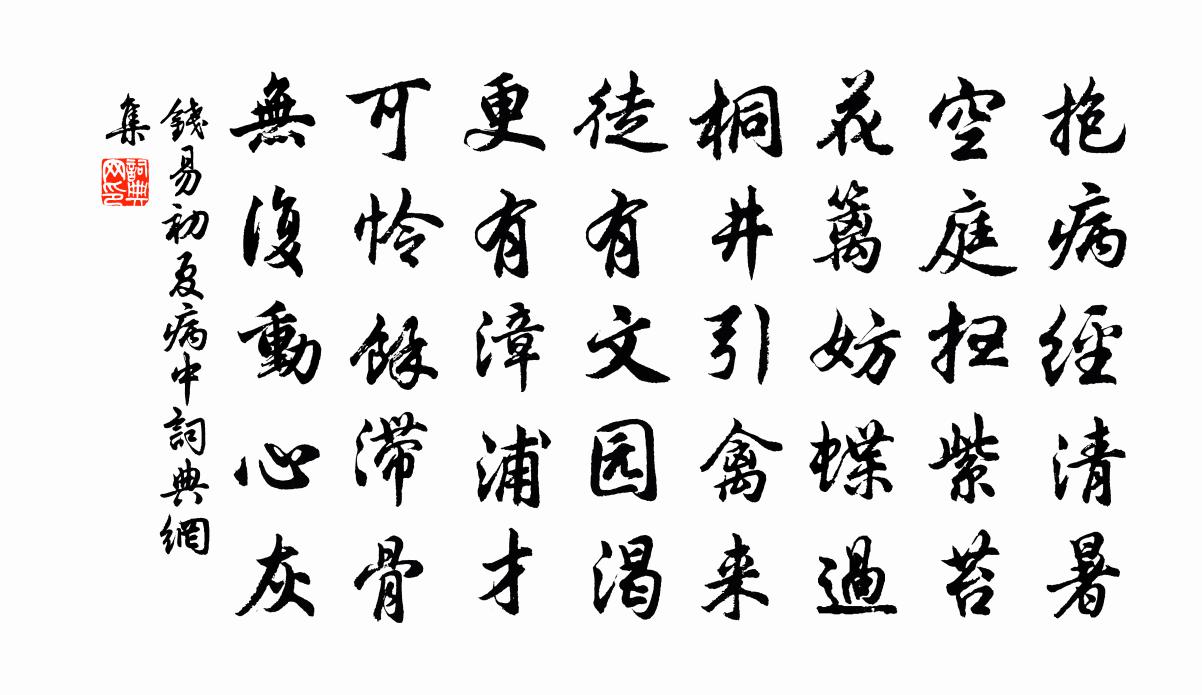 抱病經清暑
空庭扫紫苔
花篱妨蝶過
桐井引禽来
徒有文园渴
更有漳浦才
可怜餘滞骨
無復動心灰
錢易初夏病中詞典網
集
詞典
网印